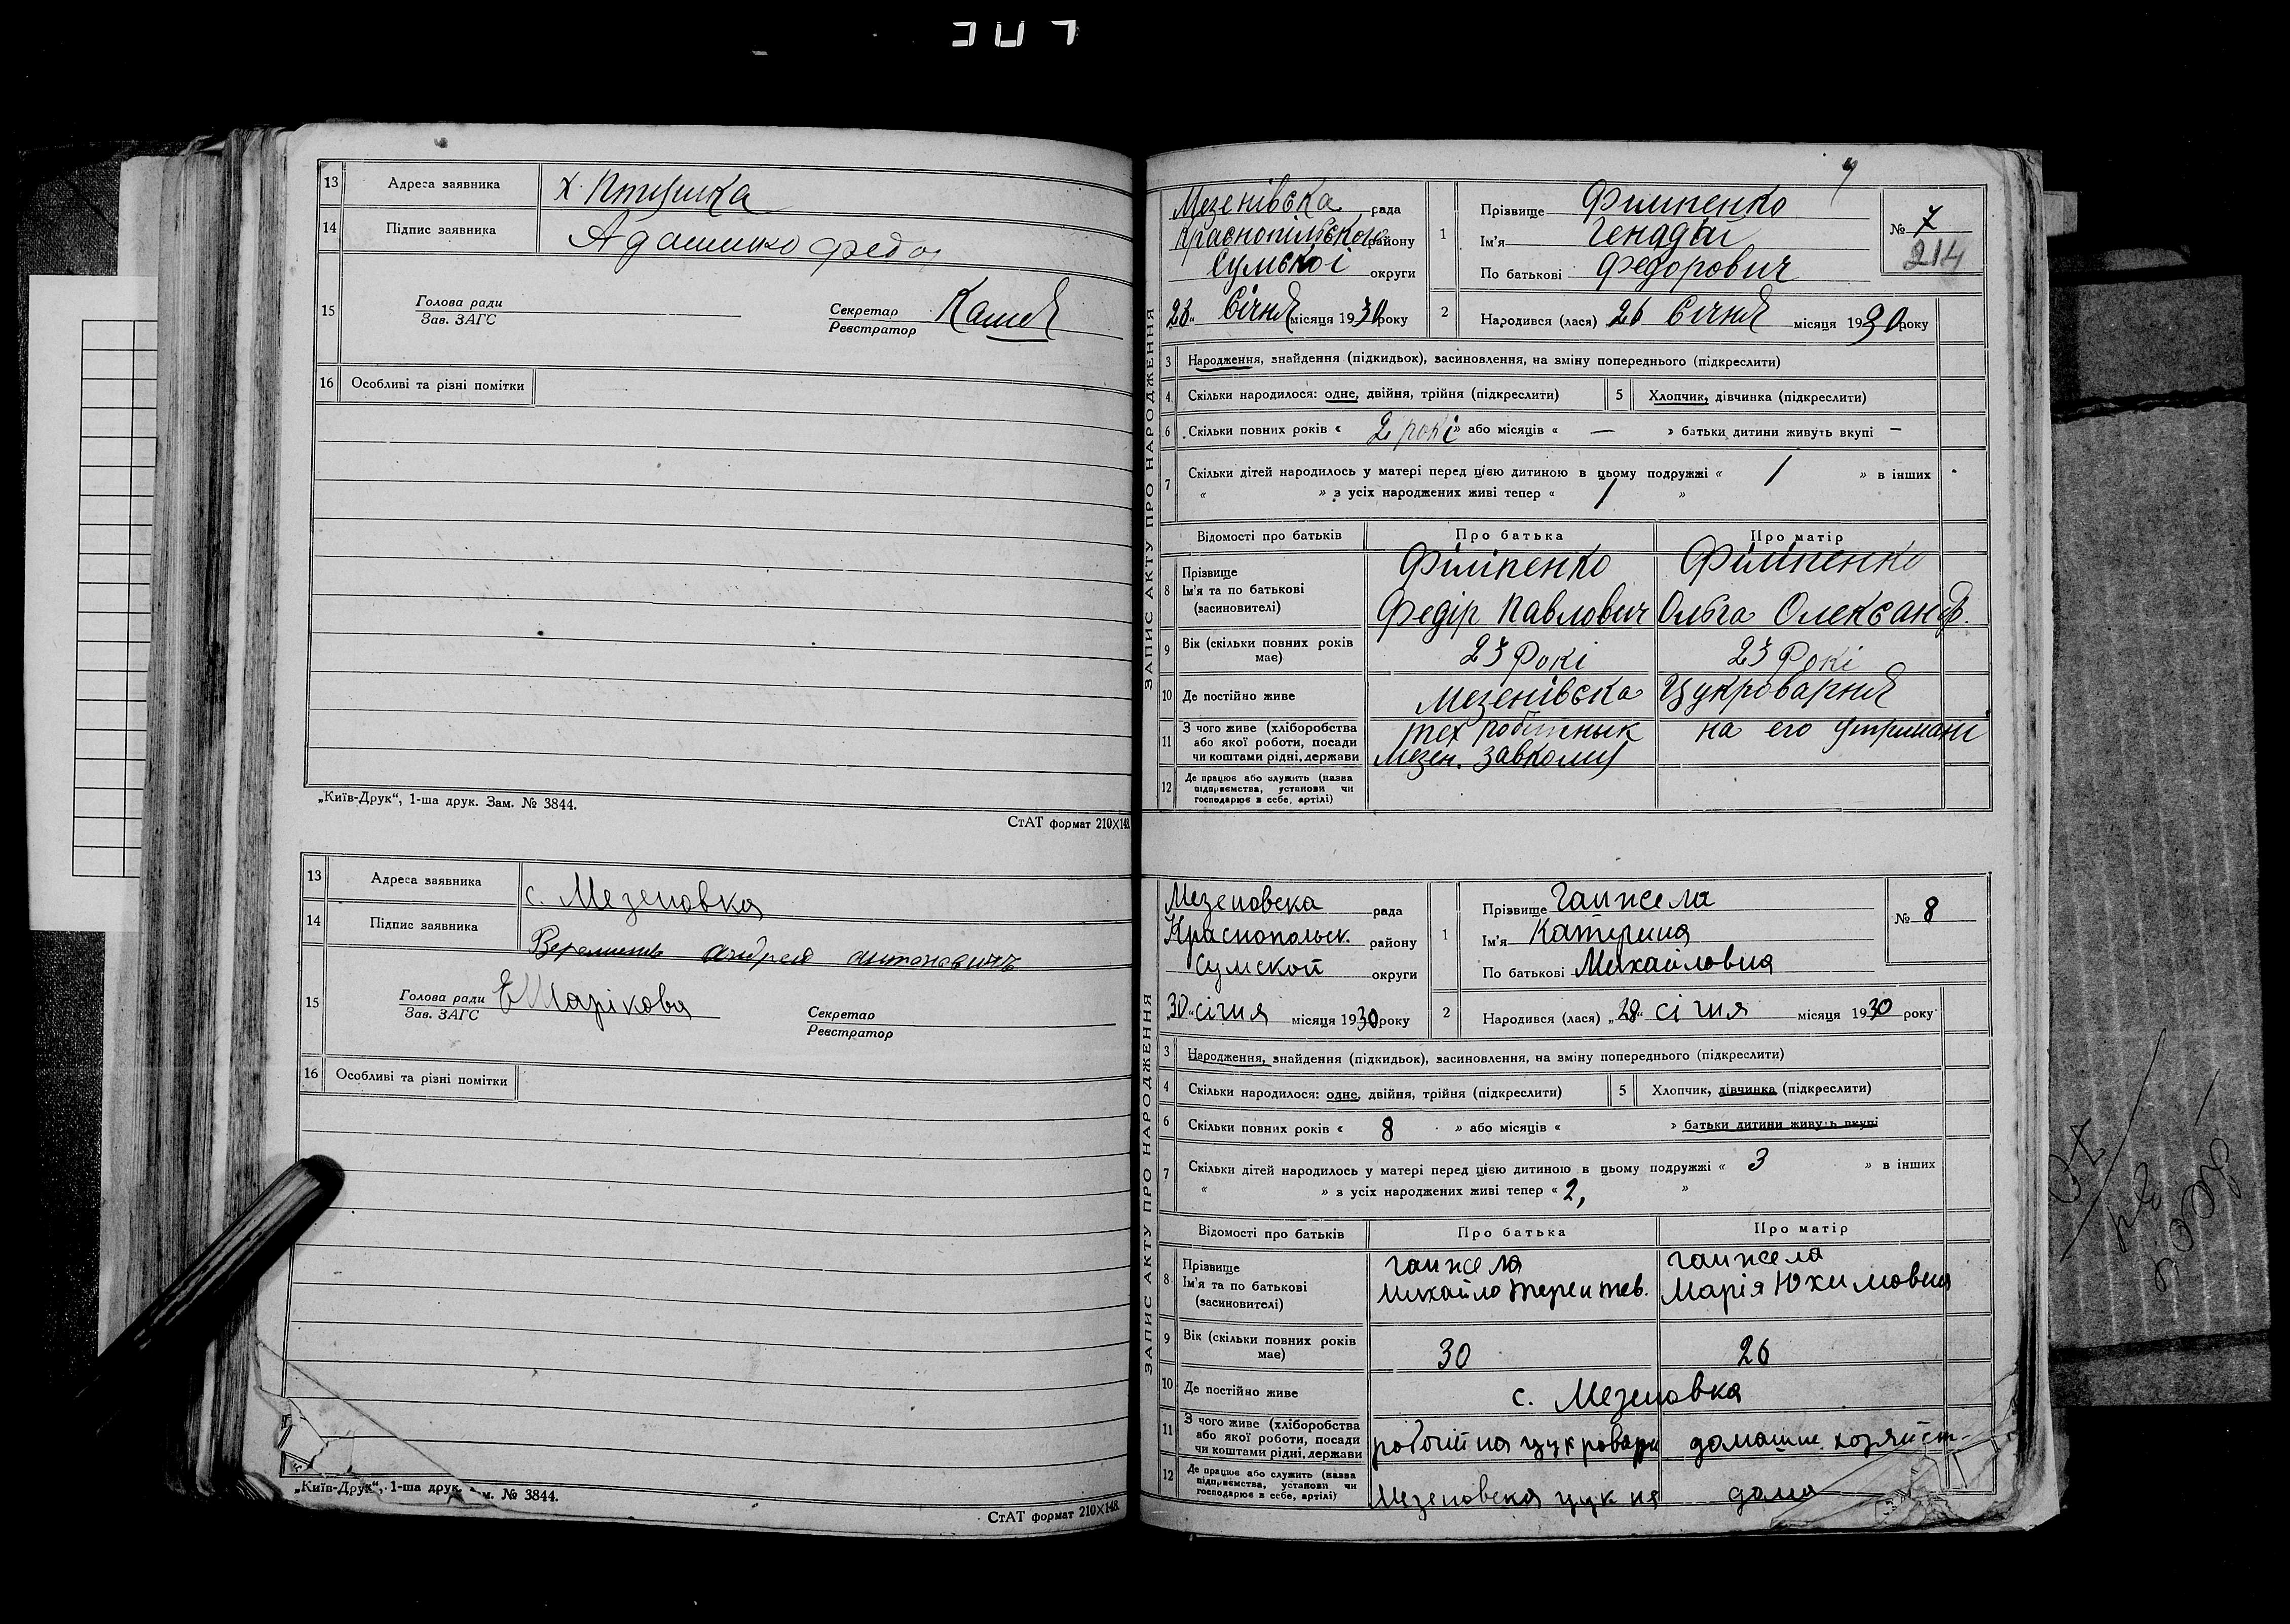 307
13 Адреса заявника х. Птишка
14 Підпис заявника Адаменко Федо
15 Голова ради Зав. ЗАГС Секретар Реєстратор
16 Особливі та різні помітки
„Київ-Друк“, 1-ша друк. Зам. № 3844.
СтАТ формат 210×148
13 Адреса заявника с. Мезеновка
14 Підпис заявника андрей антоновичъ
15 Голова ради Зав. ЗАГС ЕШарікова Секретар Реєстратор
16 Особливі та різні помітки
„Київ-Друк“, 1-ша друк. № 3844.
СтАТ формат 210×148.
ЗАПИС АКТУ ПРО НАРОДЖЕННЯ
Мезенівска рада
Краснопільского району
Сумскоі округи
28 Січня місяця 1930 року
1 Прізвище Филипенко
Ім'я Генадій
По батькові Федорович
№ 7
214
2 Народився (лася) 26 Січня місяця 1930 року
3 Народження, знайдення (підкидьок), засиновлення, на зміну попереднього (підкреслити)
4 Скільки народилося: одне, двійня, трійня (підкреслити) 5 Хлопчик, дівчинка (підкреслити)
6 Скільки повних років « 2 рокі » або місяців « — » батьки дитини живуть вкупі —
7 Скільки дітей народилось у матері перед цією дитиною в цьому подружжі « 1 » в інших
« » з усіх народжених живі тепер « 1 »
Відомості про батьків Про батька Про матір
8 Прізвище Ім'я та по батькові (засиновителі) Філіпенко Федір Павлович Філіпенко Ольга Олександ.
9 Вік (скільки повних років має) 23 Рокі 23 Рокі
10 Де постійно живе Мезенівска Цукроварня
11 З чого живе (хліборобства або якої роботи, посади чи коштами рідні, держави тех робітнык Мезен. Завкому на его утримані
12 Де працює або служить (назва підприємства, установи чи господарює в себе, артілі)
ЗАПИС АКТУ ПРО НАРОДЖЕННЯ
Мезеновска рада
Краснопольск. району
Сумской округи
„30“ січня місяця 1930 року
1 Прізвище Ганжела
Ім'я Катерина
По батькові Михайловна
№ 8
2 Народився (лася) „28“ січня місяця 1930 року
3 Народження, знайдення (підкидьок), засиновлення, на зміну попереднього (підкреслити)
4 Скільки народилося: одне, двійня, трійня (підкреслити) 5 Хлопчик, дівчинка (підкреслити)
6 Скільки повних років « 8 » або місяців « » батьки дитини живуть вкупі
7 Скільки дітей народилось у матері перед цією дитиною в цьому подружжі « 3 » в інших
« » з усіх народжених живі тепер « 2, »
Відомості про батьків Про батька Про матір
8 Прізвище Ім'я та по батькові (засиновителі) Ганжела Михайло Терентев. Ганжела Марія Юхимовна
9 Вік (скільки повних років має) 30 26
10 Де постійно живе с. Мезеновка
11 З чого живе (хліборобства або якої роботи, посади чи коштами рідні, держави робочій на цукроварн домашн. хозяйст-
12 Де працює або служить (назва підприємства, установи чи господарює в себе, артілі) Мезеновска цук ня дома